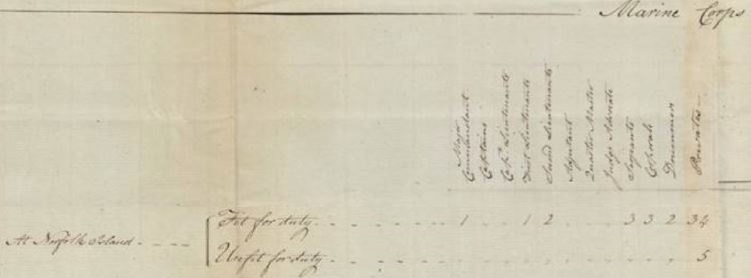 Marine Corps
Major Commandant
Captains
Capt. Lieutenants
First Lieutenants
Second Lieutenants
Adjutant
Quarter Master
Judge Advocate
Serjeants
Corporals
Drummers
Privates
At Norfolk Island
Fit for duty 1 1 2 3 3 2 34
Unfit for duty 5